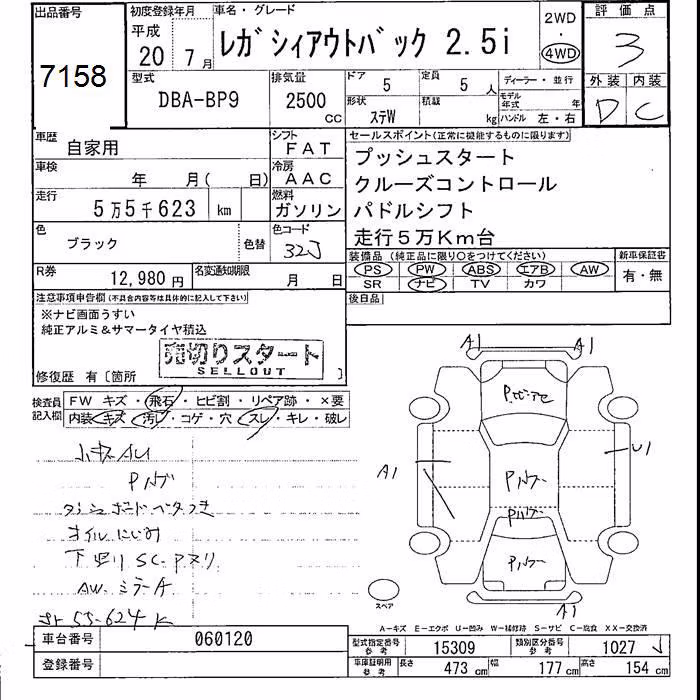 出品番号
7158
初度登録年月
平成
20年 7月
車名・グレード
レガシィアウトバック 2.5i
2WD
・
4WD
評価点
3
外装 内装
D C
型式
DBA-BP9
排気量
2500 CC
ドア
5
定員
5人
形状
ステW
積載
kg
ディーラー・並行
モデル年式 年
ハンドル 左・右
車歴
自家用
シフト
FAT
車検
年 月( 日)
冷房
AAC
走行
5万5千623 km
燃料
ガソリン
色
ブラック
色替
色コード
32J
R券
12,980円
名変通知期限
月 日
セールスポイント(正常に機能するものに限ります)
プッシュスタート
クルーズコントロール
パドルシフト
走行5万Km台
装備品(純正品に限り○をつけてください)
PS PW ABS エアB AW
SR ナビ TV カワ
新車保証書
有・無
後日品
注意事項申告欄(不具合内容等は具体的に記入して下さい)
※ナビ画面うすい
純正アルミ&サマータイヤ積込
売切りスタート
SELLOUT
修復歴 有〔箇所 〕
検査員記入欄
FW キズ・飛石・ヒビ割・リペア跡・×要
内装 キズ・汚レ・コゲ・穴・スレ・キレ・破レ
小キズAU
Pハゲ
ダッシュボードベタつき
オイルにじみ
下廻りSC・Pヌリ
AW・ミラーA
55-624K
A1 A1
P.ピアセ
A1
Pハゲー
U1
Pハゲー
Pハゲー
A1
スペア
A-キズ E-エクボ U-凹み W-補修跡 S-サビ C-腐食 XX-交換済
車台番号
060120
登録番号
型式指定番号
参考
15309
類別区分番号
参考
1027
車庫証明用
参考
長さ 473cm 幅 177cm 高さ 154cm